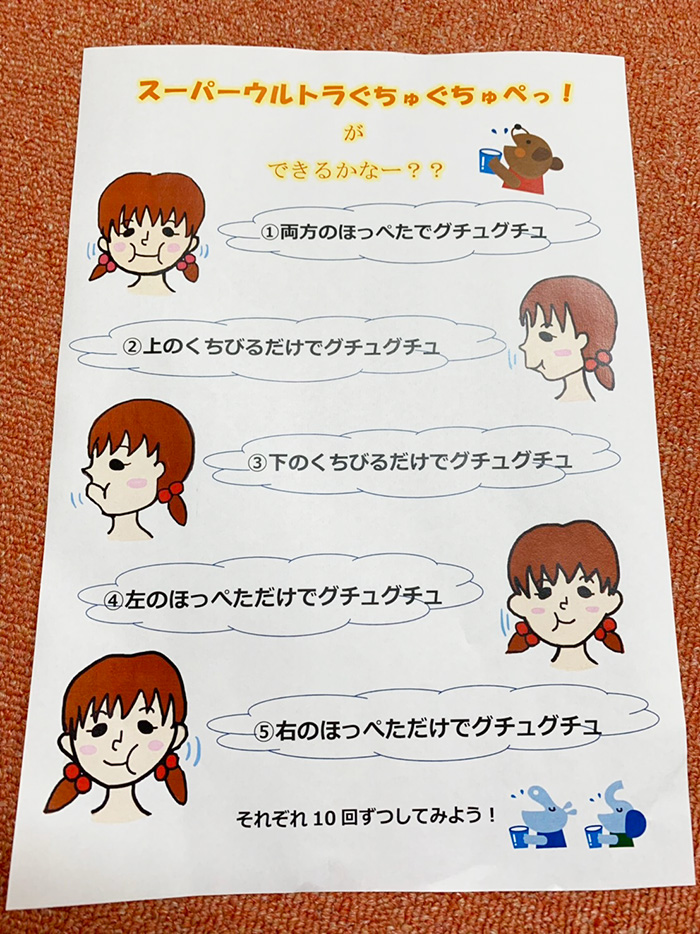 スーパーウルトラぐちゅぐちゅぺっ！
が
できるかなー？？
①両方のほっぺたでグチュグチュ
②上のくちびるだけでグチュグチュ
③下のくちびるだけでグチュグチュ
④左のほっぺただけでグチュグチュ
⑤右のほっぺただけでグチュグチュ
それぞれ10回ずつしてみよう！